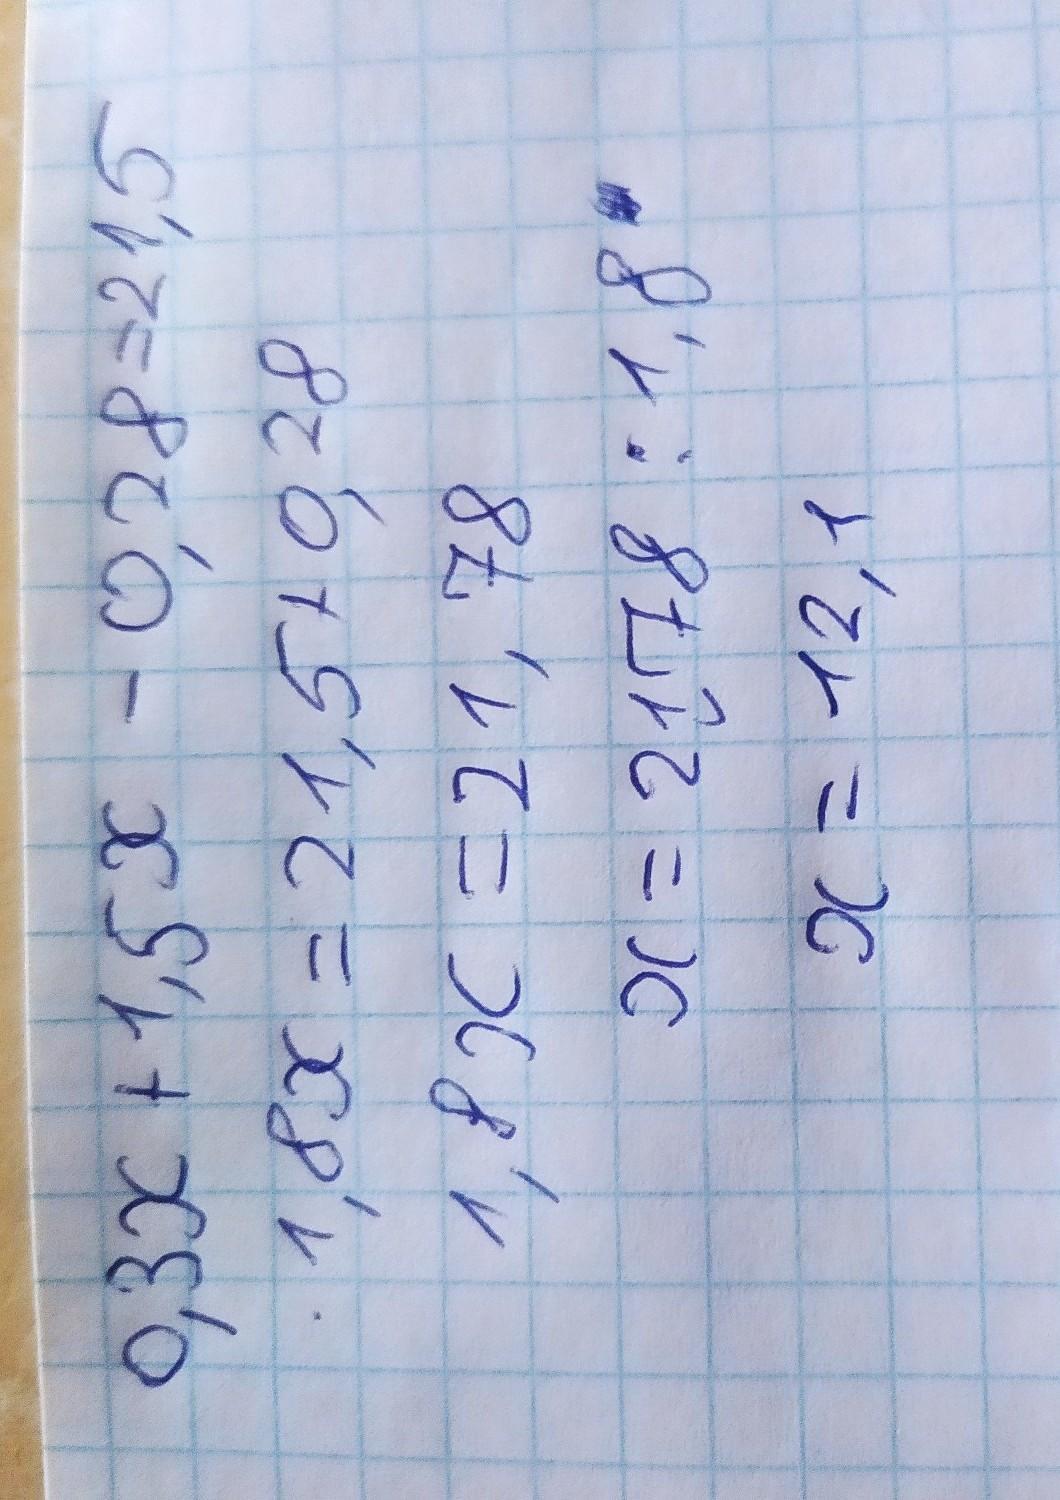 0,3x + 1,5x - 0,28 = 21,5
1,8x = 21,5 + 0,28
1,8x = 21,78
x = 21,78 : 1,8
x = 12,1